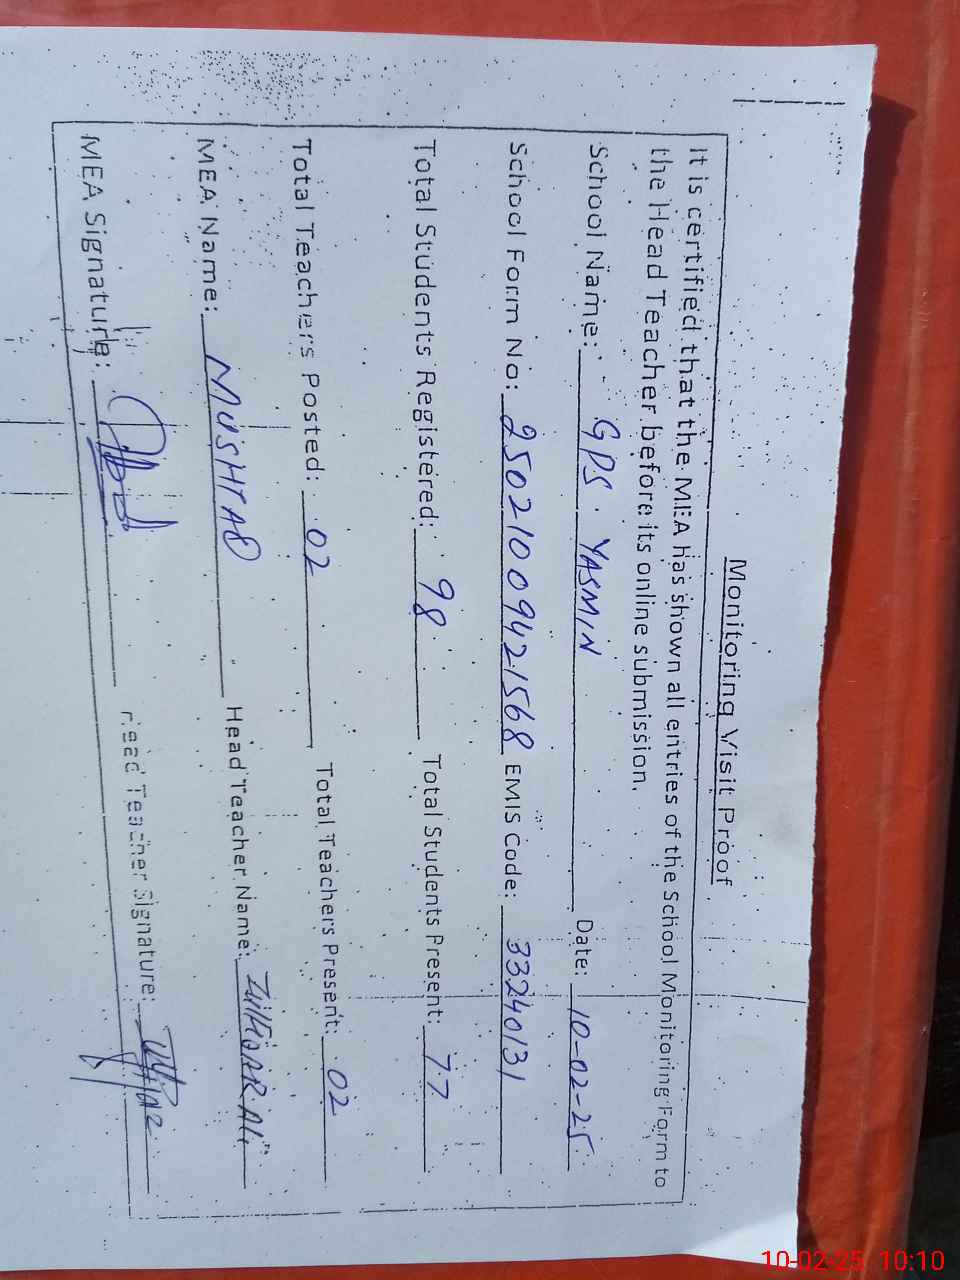 Monitoring Visit Proof
It is certified that the MEA has shown all entries of the School Monitoring Form to
the Head Teacher before its online submission.
School Name: GPS. YASMIN Date: 10-02-25
School Form No: 25021009421568 EMIS Code: 33240131
Total Students Registered: 98 Total Students Present: 77
Total Teachers Posted: 02 Total Teachers Present: 02
MEA Name: MUSHTAQ Head Teacher Name: ALI
MEA Signature: Head Teacher Signature:
10-02-25 10:10